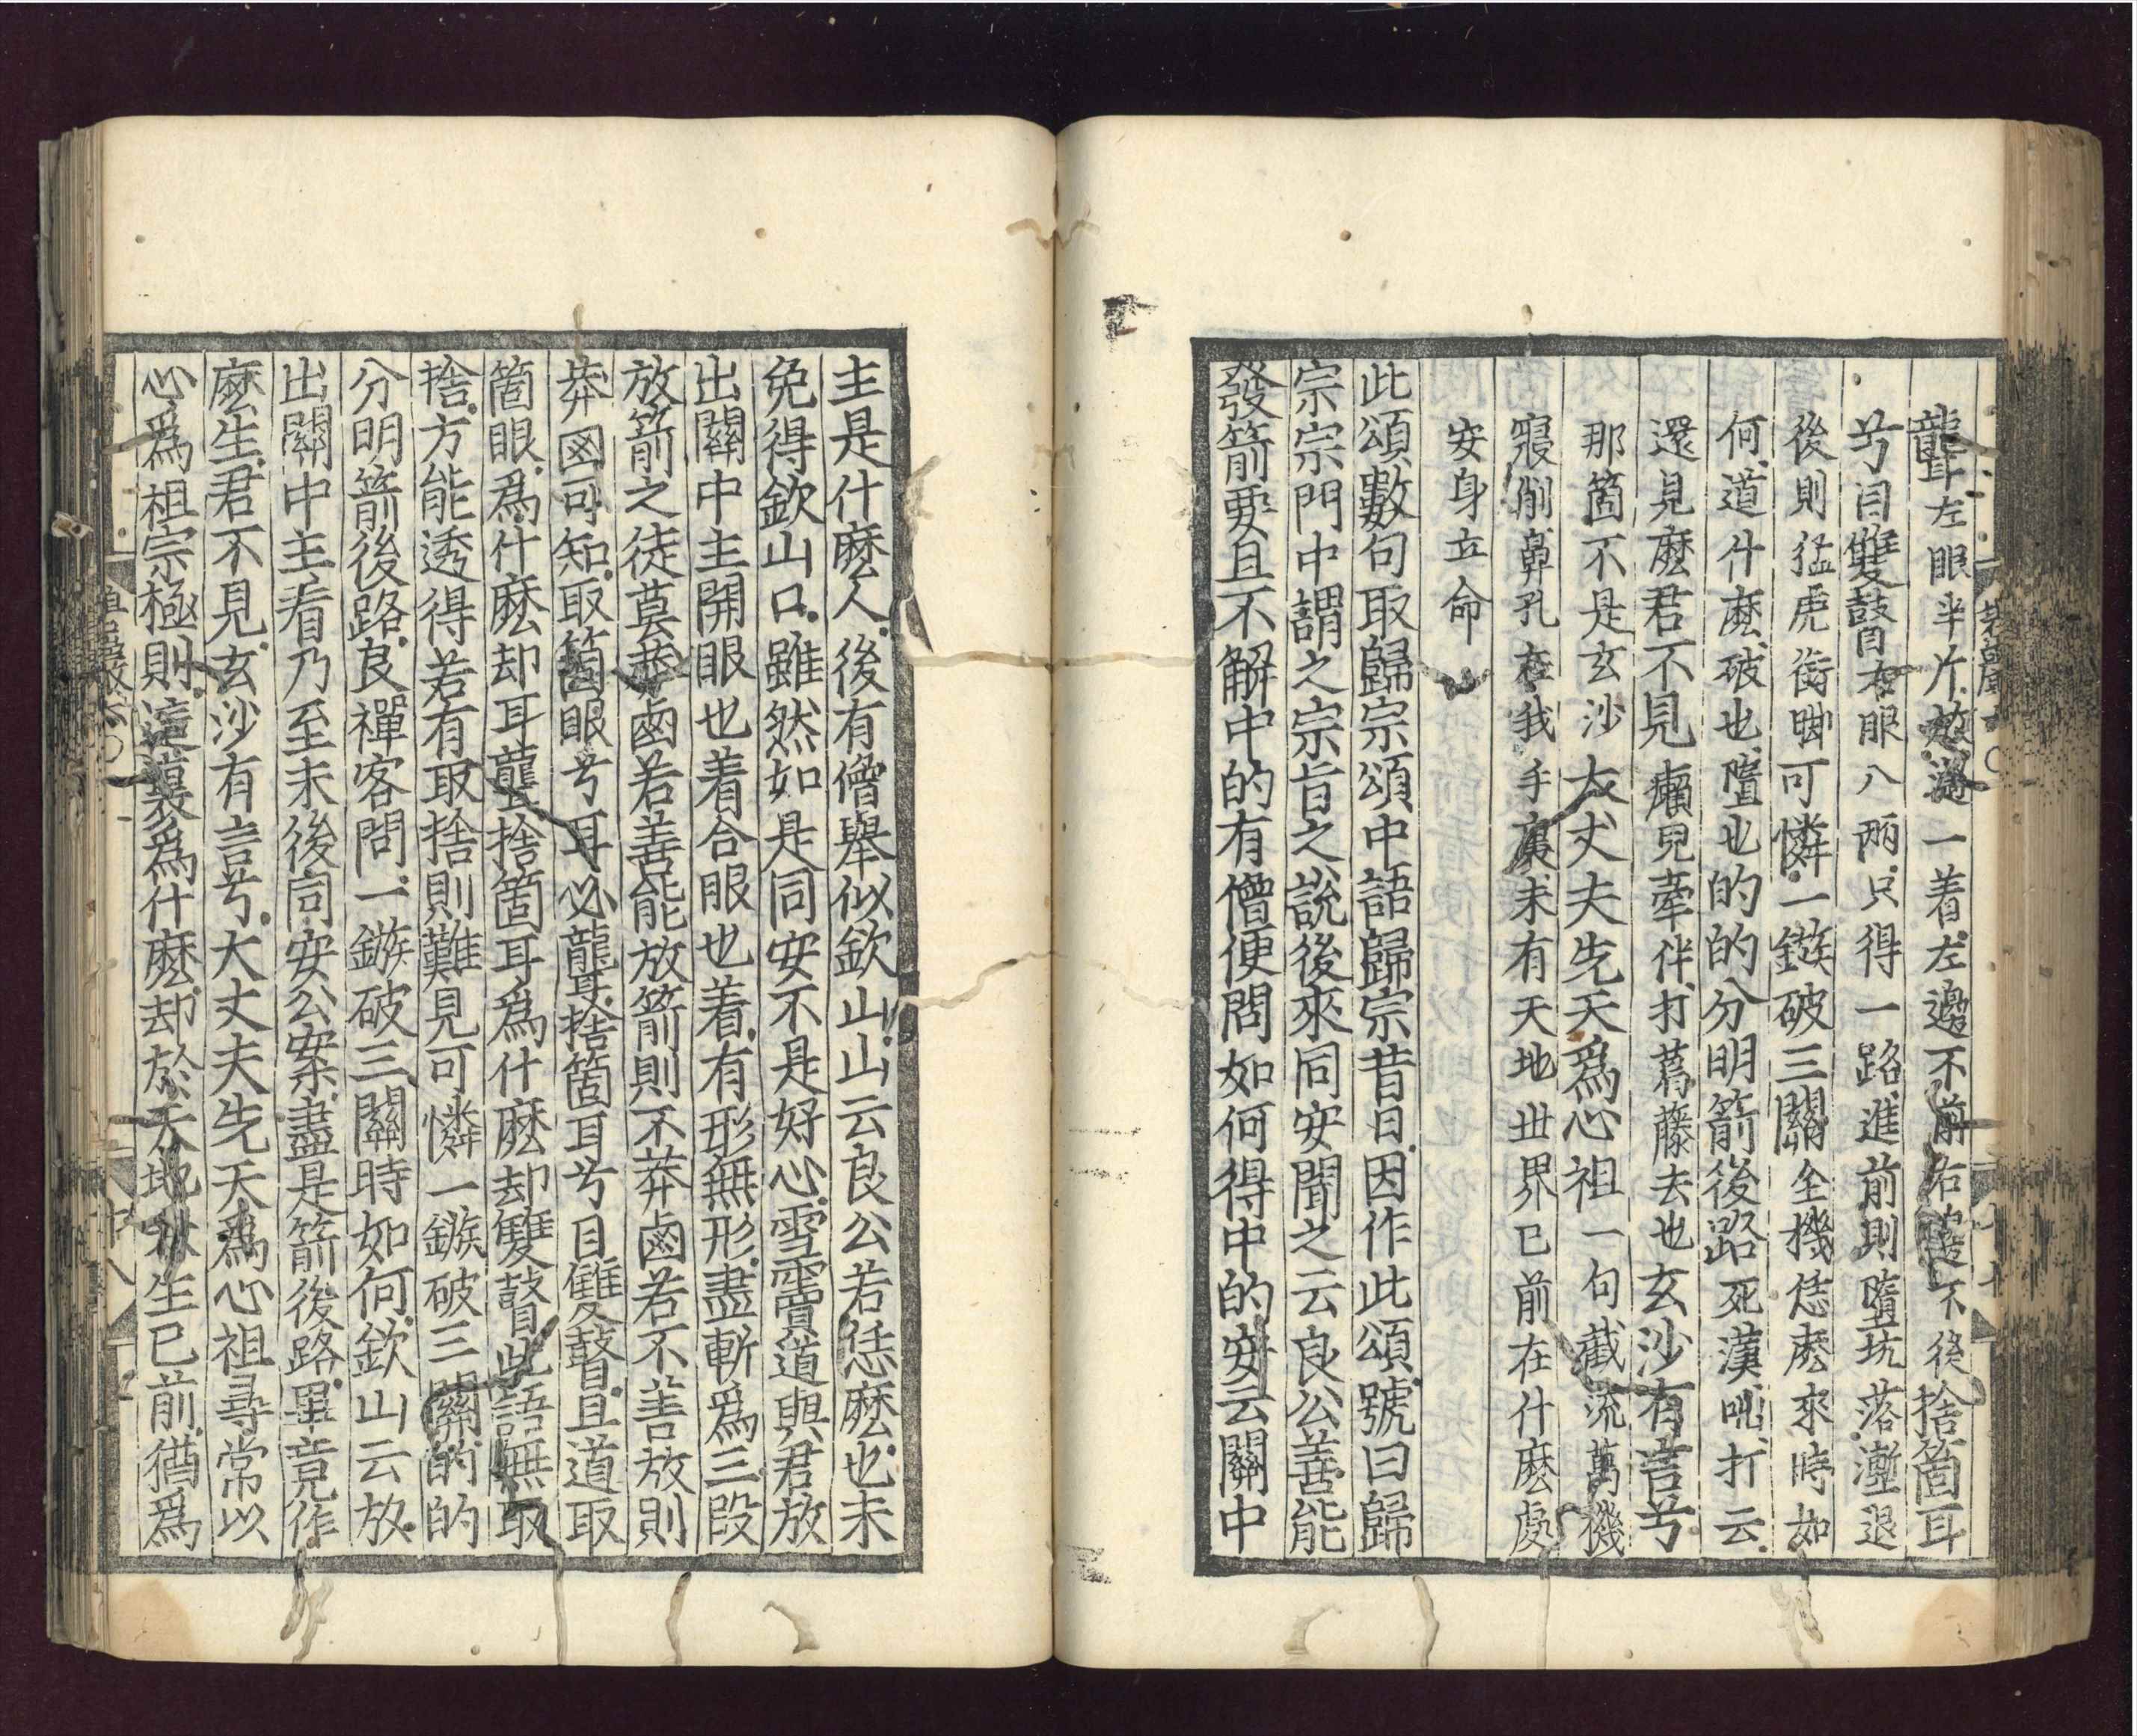 聾左眼半斤放過一着左邊不前右邊不後捨箇耳
兮目雙瞽右眼八兩只得一路進前則墮坑落壍退
後則猛虎銜脚可憐一鏃破三關全機恁麽來時如
何道什麽破也墮也的的分明箭後路死漢咄打云
還見麽君不見癩兒牽伴打葛藤去也玄沙有言兮
那箇不是玄沙大丈夫先天爲心祖一句截流萬機
寢削鼻孔在我手裏未有天地世界已前在什麽處
安身立命
此頌數句取歸宗頌中語歸宗昔日因作此頌號曰歸
宗宗門中謂之宗旨之說後來同安聞之云良公善能
發箭要且不解中的有僧便問如何得中的安云關中
主是什麽人後有僧舉似欽山山云良公若恁麽也未
免得欽山口雖然如是同安不是好心雪竇道與君放
出關中主開眼也着合眼也着有形無形盡斬爲三段
放箭之徒莫莽鹵若善能放箭則不莽鹵若不善放則
莽鹵可知取箇眼兮耳必聾捨箇耳兮目雙瞽且道取
箇眼爲什麽却耳聾捨箇耳爲什麽却雙瞽此語無取
捨方能透得若有取捨則難見可憐一鏃破三關的的
分明箭後路良禪客問一鏃破三關時如何欽山云放
出關中主看乃至末後同安公案盡是箭後路畢竟作
麽生君不見玄沙有言兮大丈夫先天爲心祖尋常以
心爲祖宗極則這裏爲什麽却於天地未生已前猶爲